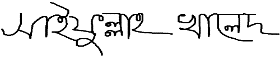 সাইফুল্লাহ খালেদ